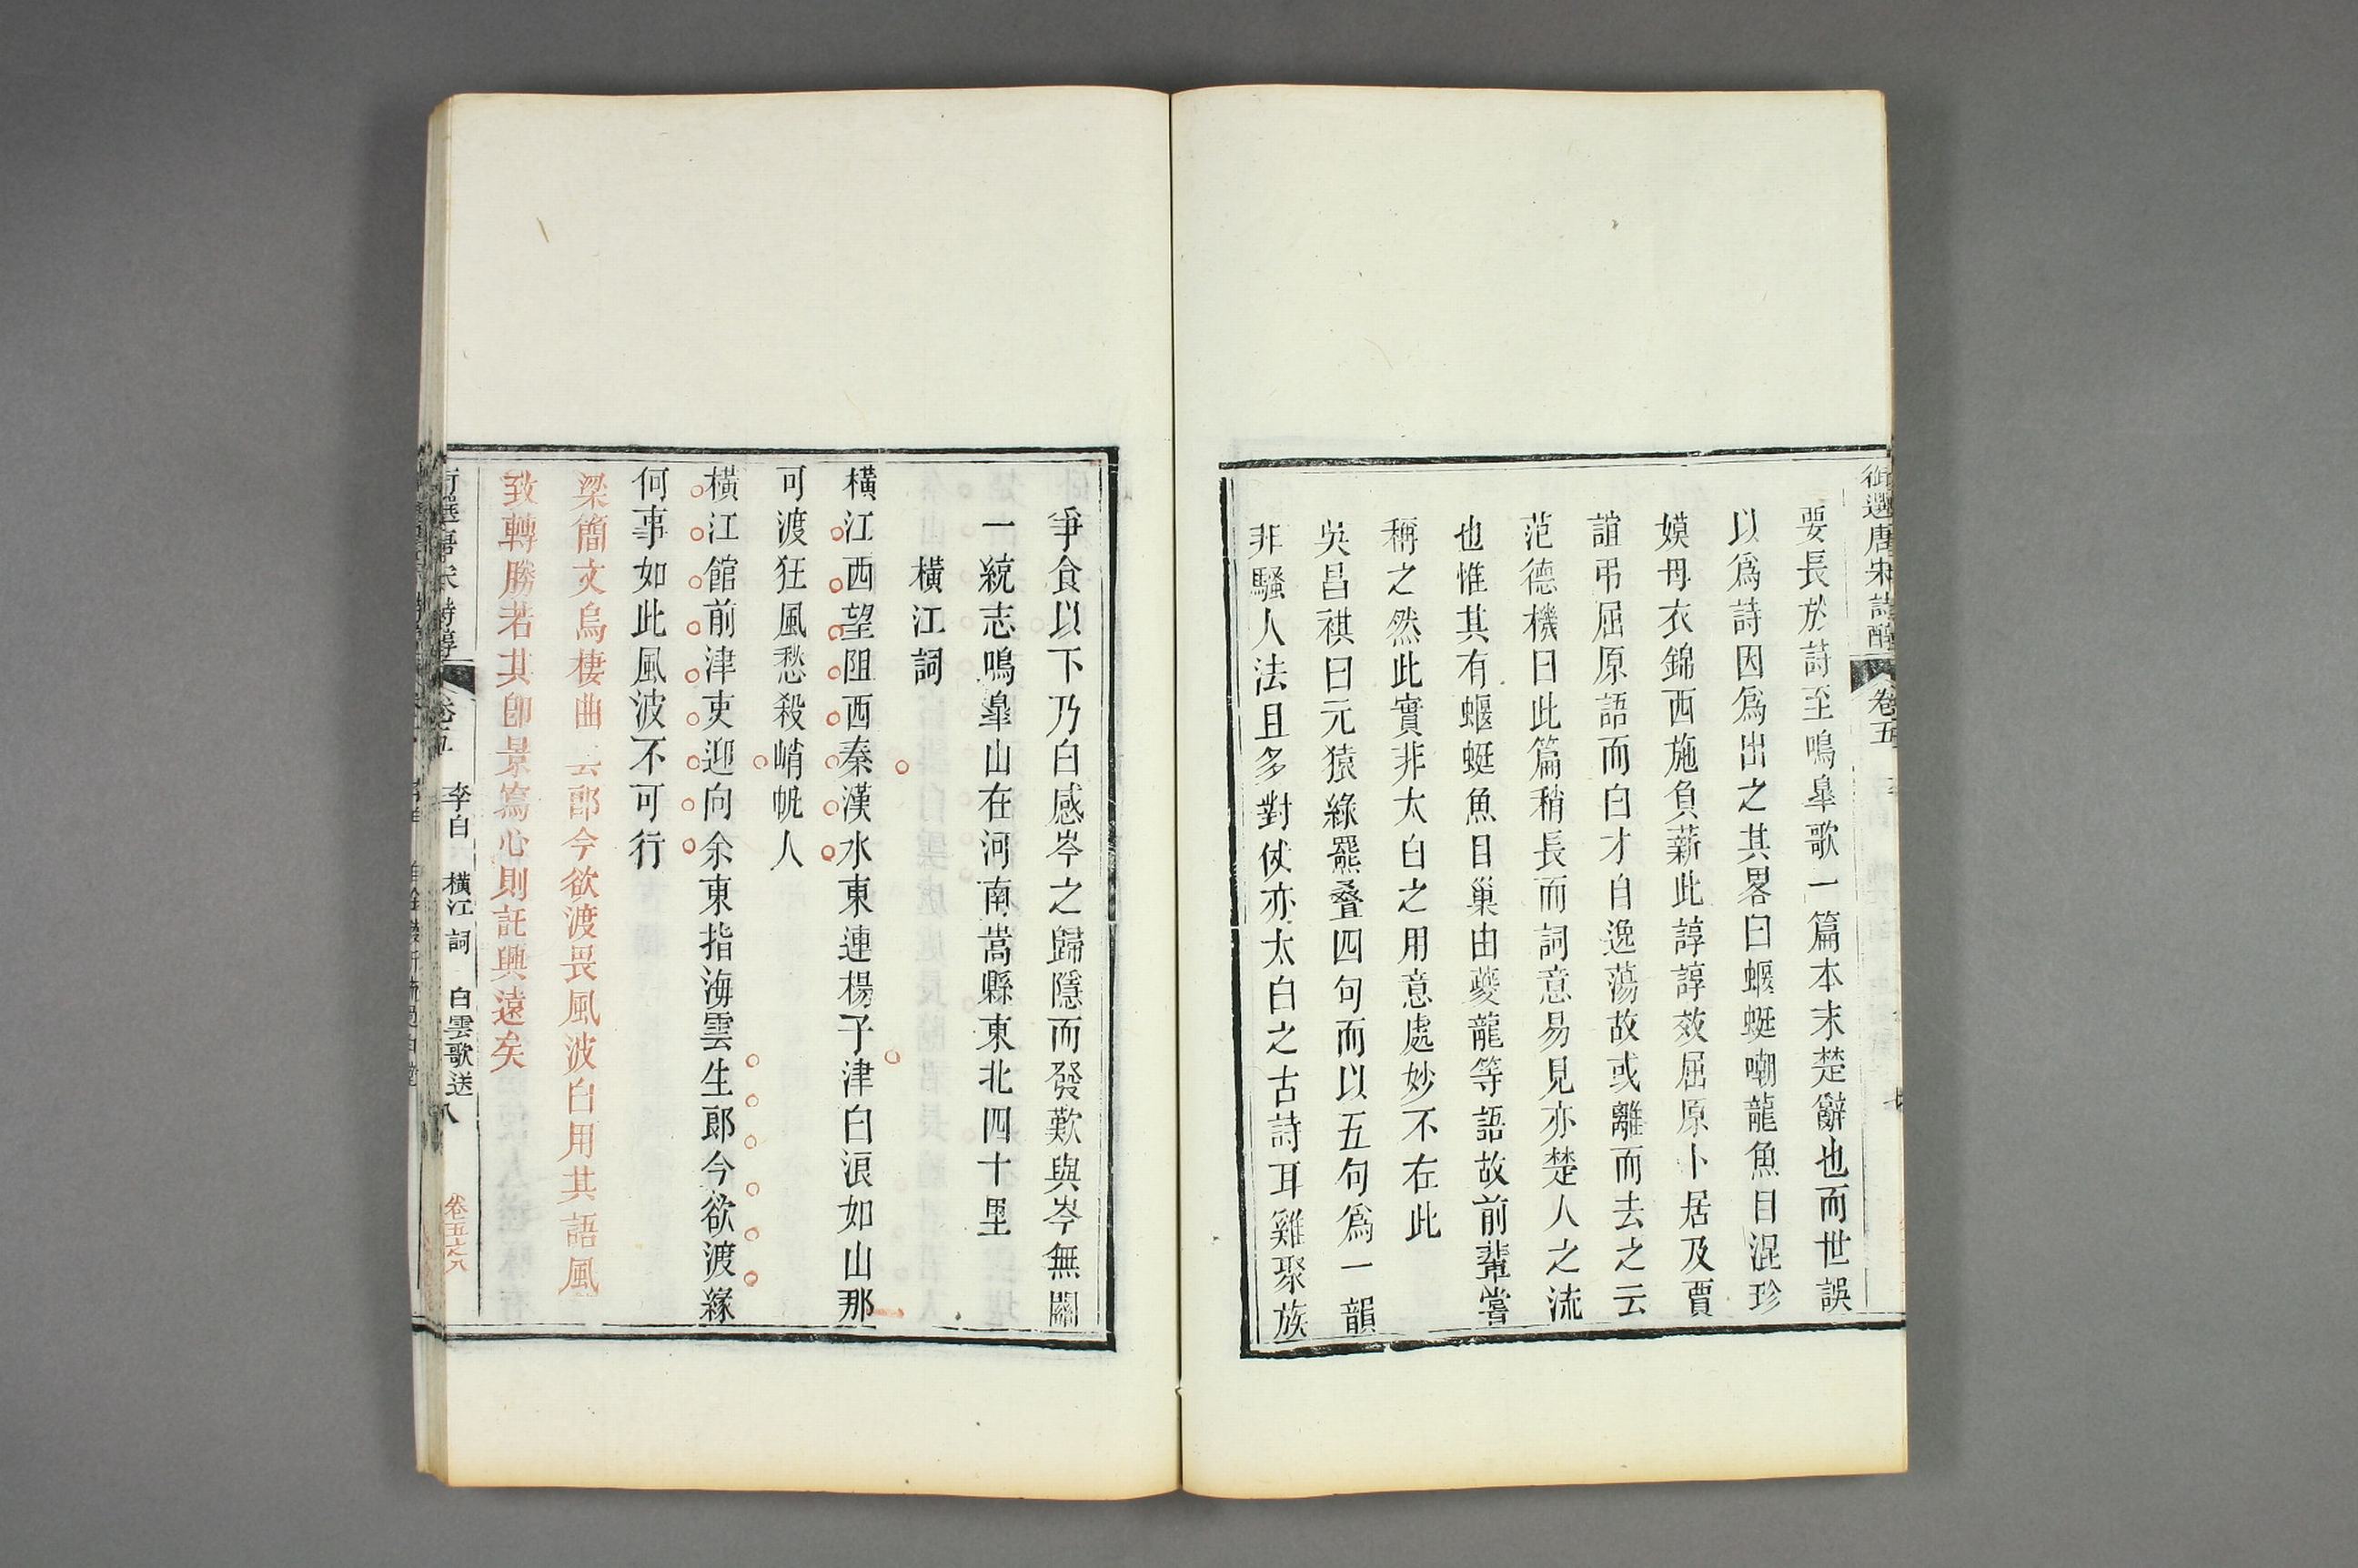 御選唐宋詩醇 卷五
要長於詩至鳴皐歌一篇本末楚辭也而世誤
以爲詩因爲出之其畧曰蝘蜓嘲龍魚目混珍
嫫母衣錦西施負薪此諄諄效屈原卜居及賈
誼弔屈原語而白才自逸蕩故或離而去之云
范德機曰此篇稍長而詞意易見亦楚人之流
也惟其有蝘蜓魚目巢由夔龍等語故前輩嘗
稱之然此實非太白之用意處妙不在此
吳昌祺曰元猿綠羆疊四句而以五句爲一韻
非騷人法且多對仗亦太白之古詩耳雞聚族
爭食以下乃白感岑之歸隱而發歎與岑無關
一統志鳴臯山在河南嵩縣東北四十里
橫江詞
橫江西望阻西秦漢水東連楊子津白浪如山那
可渡狂風愁殺峭帆人
橫江館前津吏迎向余東指海雲生郎今欲渡緣
何事如此風波不可行
梁簡文烏棲曲云郎今欲渡畏風波白用其語風
致轉勝若其卽景寫心則託興遠矣
選唐宋詩醇 卷五 李白 橫江詞 白雲歌送 八
卷五之八